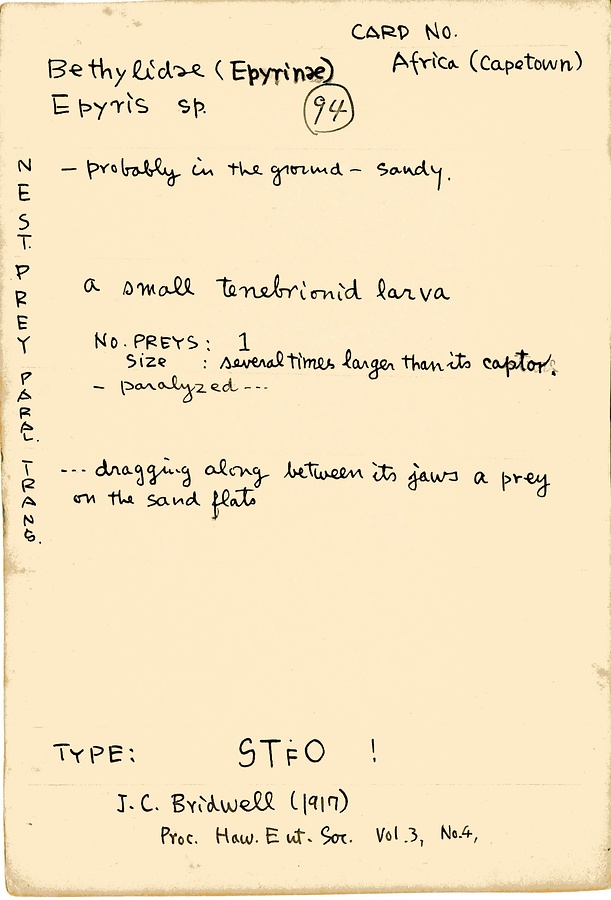 CARD NO.
Bethylidae (Epyrinae) Africa (Capetown)
Epyris sp. 94
NEST. - probably in the ground - sandy.
PREY a small tenebrionid larva
No. PREYS: 1
Size : several times larger than its captor.
PARAL. - paralyzed ---
TRANS. --- dragging along between its jaws a prey
on the sand flats
TYPE: STFO !
J.C. Bridwell (1917)
Proc. Haw. Ent. Soc. Vol.3, No.4,